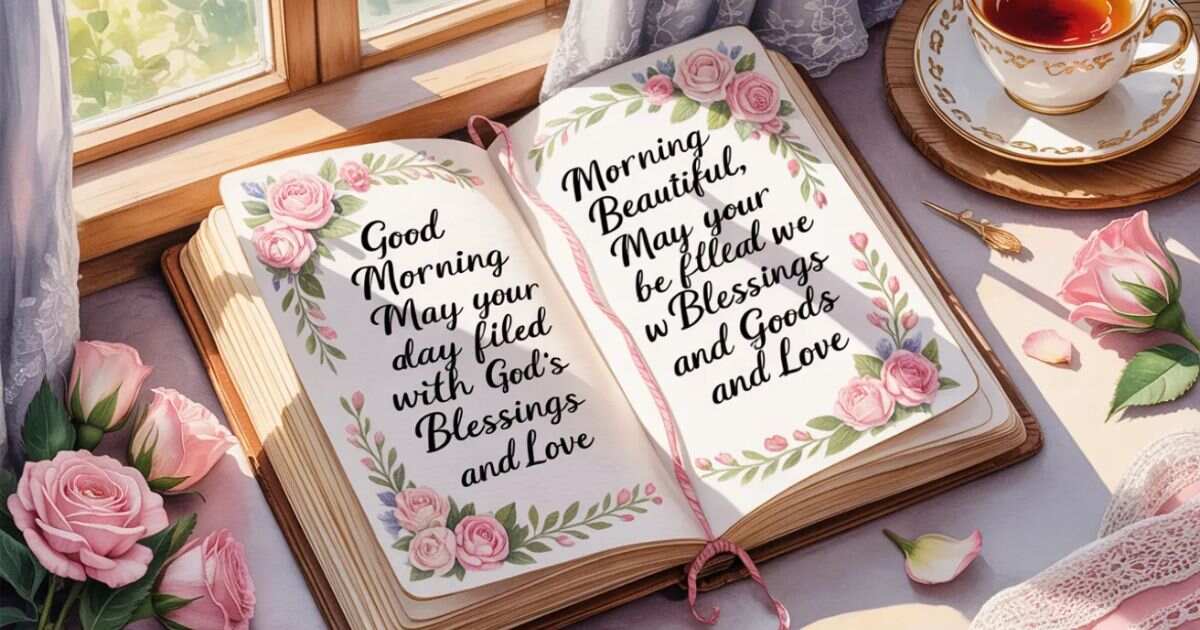 Good
Morning
May your
day filed
with God's
Blessings
and Love
Morning
Beautiful,
May your
be flled we
w Blessings
and Goods
and Love